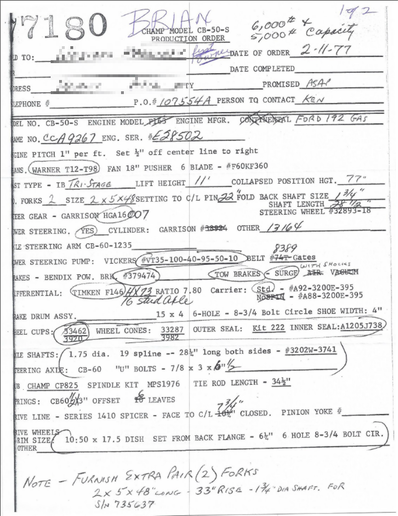 7180 BRIAN 192
CHAMP MODEL CB-50-S 6,000# &
PRODUCTION ORDER 5,000# Capacity
D TO: DATE OF ORDER 2-11-77
DATE COMPLETED
RESS PROMISED ASAP
LEPHONE # P.O.# 107554A PERSON TO CONTACT KEN
DEL NO. CB-50-S ENGINE MODEL ENGINE MFGR. CONTINENTAL FORD 192 GAS
AME NO. CCA9267 ENG. SER. #E28502
GINE PITCH 1" per ft. Set ½" off center line to right
ANS. WARNER T12-T98 FAN 18" PUSHER 6 BLADE - #F60KF360
ST TYPE - IB TRI-STAGE LIFT HEIGHT 11' COLLAPSED POSITION HGT. 77"
FORKS 2 SIZE 2x5x48 SETTING TO C/L PIN 22" FOLD BACK SHAFT SIZE 1 3/4"
SHAFT LENGTH 28 1/2"
EER GEAR - GARRISON HGA16007 STEERING WHEEL #32893-18
WER STEERING. YES CYLINDER: GARRISON #33924 OTHER 13164
LE STEERING ARM CB-60-1235
WER STEERING PUMP: VICKERS #VT35-100-40-95-50-10 BELT #74T Gates 8389
AKES - BENDIX POW. BRK. #379474 TOW BRAKES - SURGE WITH SHOCKS AIR VACUUM
FFERENTIAL: TIMKEN F146 4X73 RATIO 7.80 Carrier: Std. - #A92-3200E-395
16 Stud Axle NOSPIN - #A88-3200E-395
AKE DRUM ASSY. 15 x 4 6-HOLE - 8-3/4 Bolt Circle SHOE WIDTH: 4"
EEL CUPS: 33462 WHEEL CONES: 33287 OUTER SEAL: Kit 222 INNER SEAL: A1205J738
3920 3982
LE SHAFTS: 1.75 dia. 19 spline -- 28¼" long both sides - #3202W-3741
EERING AXLE: CB-60 "U" BOLTS - 7/8 x 3 x 6 1/2"
B CHAMP CP825 SPINDLE KIT MPS1976 TIE ROD LENGTH - 34½"
RINGS: CB60 x 3" OFFSET LEAVES
IVE LINE - SERIES 1410 SPICER - FACE TO C/L 7 3/4" CLOSED. PINION YOKE #
IVE WHEELS
RIM SIZE: 10:50 x 17.5 DISH SET FROM BACK FLANGE - 6½" 6 HOLE 8-3/4 BOLT CIR.
OTHER
NOTE - FURNISH EXTRA PAIR (2) FORKS
2 x 5 x 48" LONG - 33" RISE - 1 3/4" DIA SHAFT. FOR
S/N 735637